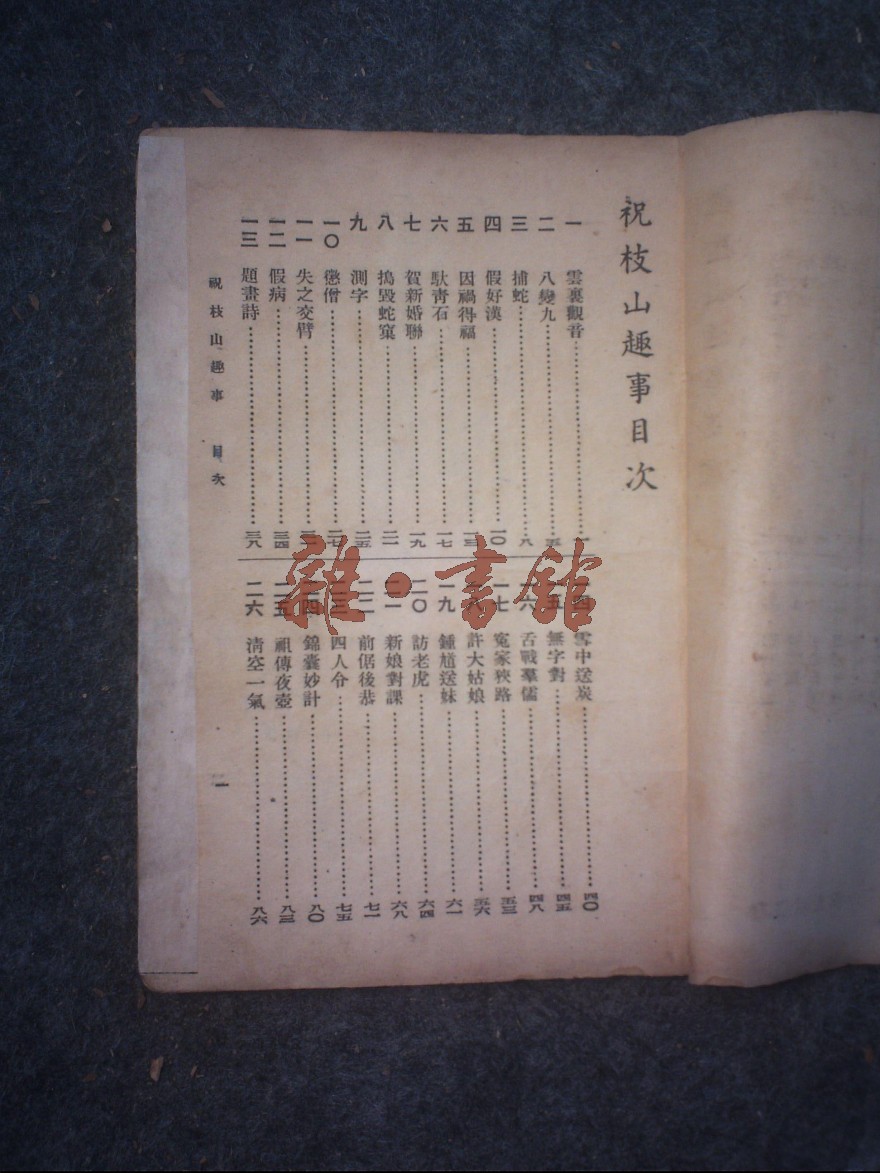 祝枝山趣事目次
一 雲裏觀音……一
二 八變九……五
三 捕蛇……八
四 假好漢……一〇
五 因禍得福……一三
六 馱靑石……一七
七 賀新婚聯……一九
八 搗毀蛇窠……二一
九 測字……二五
一〇 懲僧……二七
一一 失之交臂……
一二 假病……三四
一三 題畫詩……三八
一四 雪中送炭……四〇
一五 無字對……四五
一六 舌戰羣儒……四八
一七 寃家狹路……五三
一八 許大姑娘……五六
一九 鍾馗送妹……六一
二〇 訪老虎……六四
二一 新娘對課……六八
二二 前倨後恭……七一
二三 四人令……七五
二四 錦囊妙計……八〇
二五 祖傳夜壺……八三
二六 淸空一氣……八六
祝枝山趣事 目次
一
雜·書館